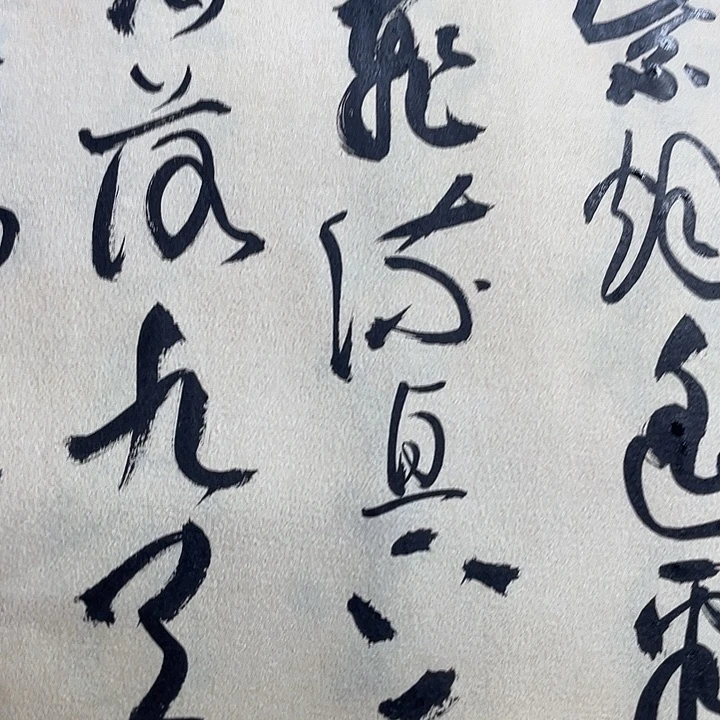 紫烟遥看
飛流直下
河落九天